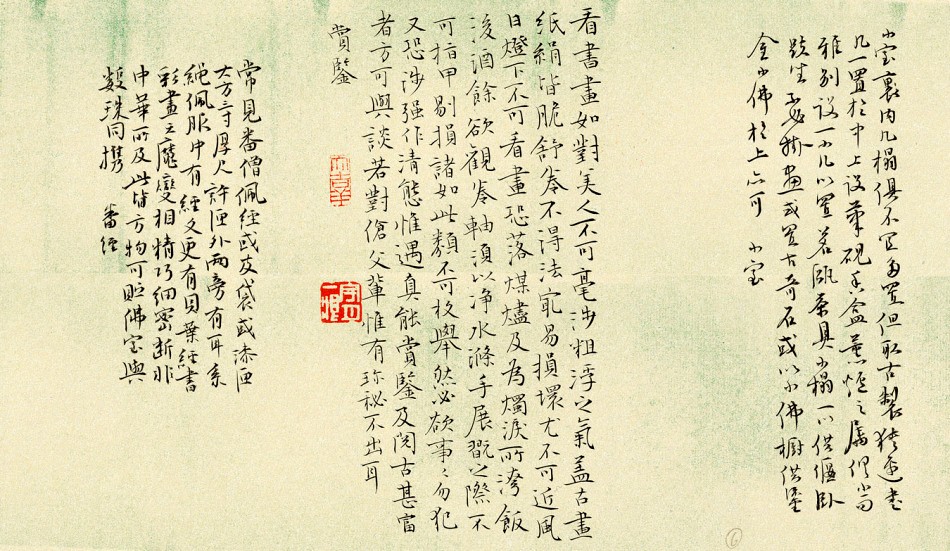 小室裏內几榻俱不宜多置但取古製狹邊書
几一置於中上設筆硯香盒薰爐之屬俱小而
雅別設一小几以置茗甌茶具小榻一以供偃臥
趺坐不必掛畫或置古奇石或以小佛櫥供鎏
金小佛於上亦可　小室
看書畫如對美人不可毫涉粗浮之氣蓋古畫
紙絹皆脆舒卷不得法最易損壞尤不可近風
日燈下不可看畫恐落煤燼及為燭淚所洿飯
後酒餘欲觀卷軸須以淨水滌手展翫之際不
可指甲剔損諸如此類不可枚舉然必欲事〻勿犯
又恐涉强作清態惟遇真能賞鑒及閱古甚富
者方可與談若對傖父輩惟有珍祕不出耳
賞鑒
常見番僧佩經或皮袋或漆匣
大方三寸厚尺許匣外兩旁有耳系
繩佩服中有經文更有貝葉經書
彩畫天魔變相精巧細密斷非
中華所及此皆方物可貯佛室與
數珠同攜　番經
6